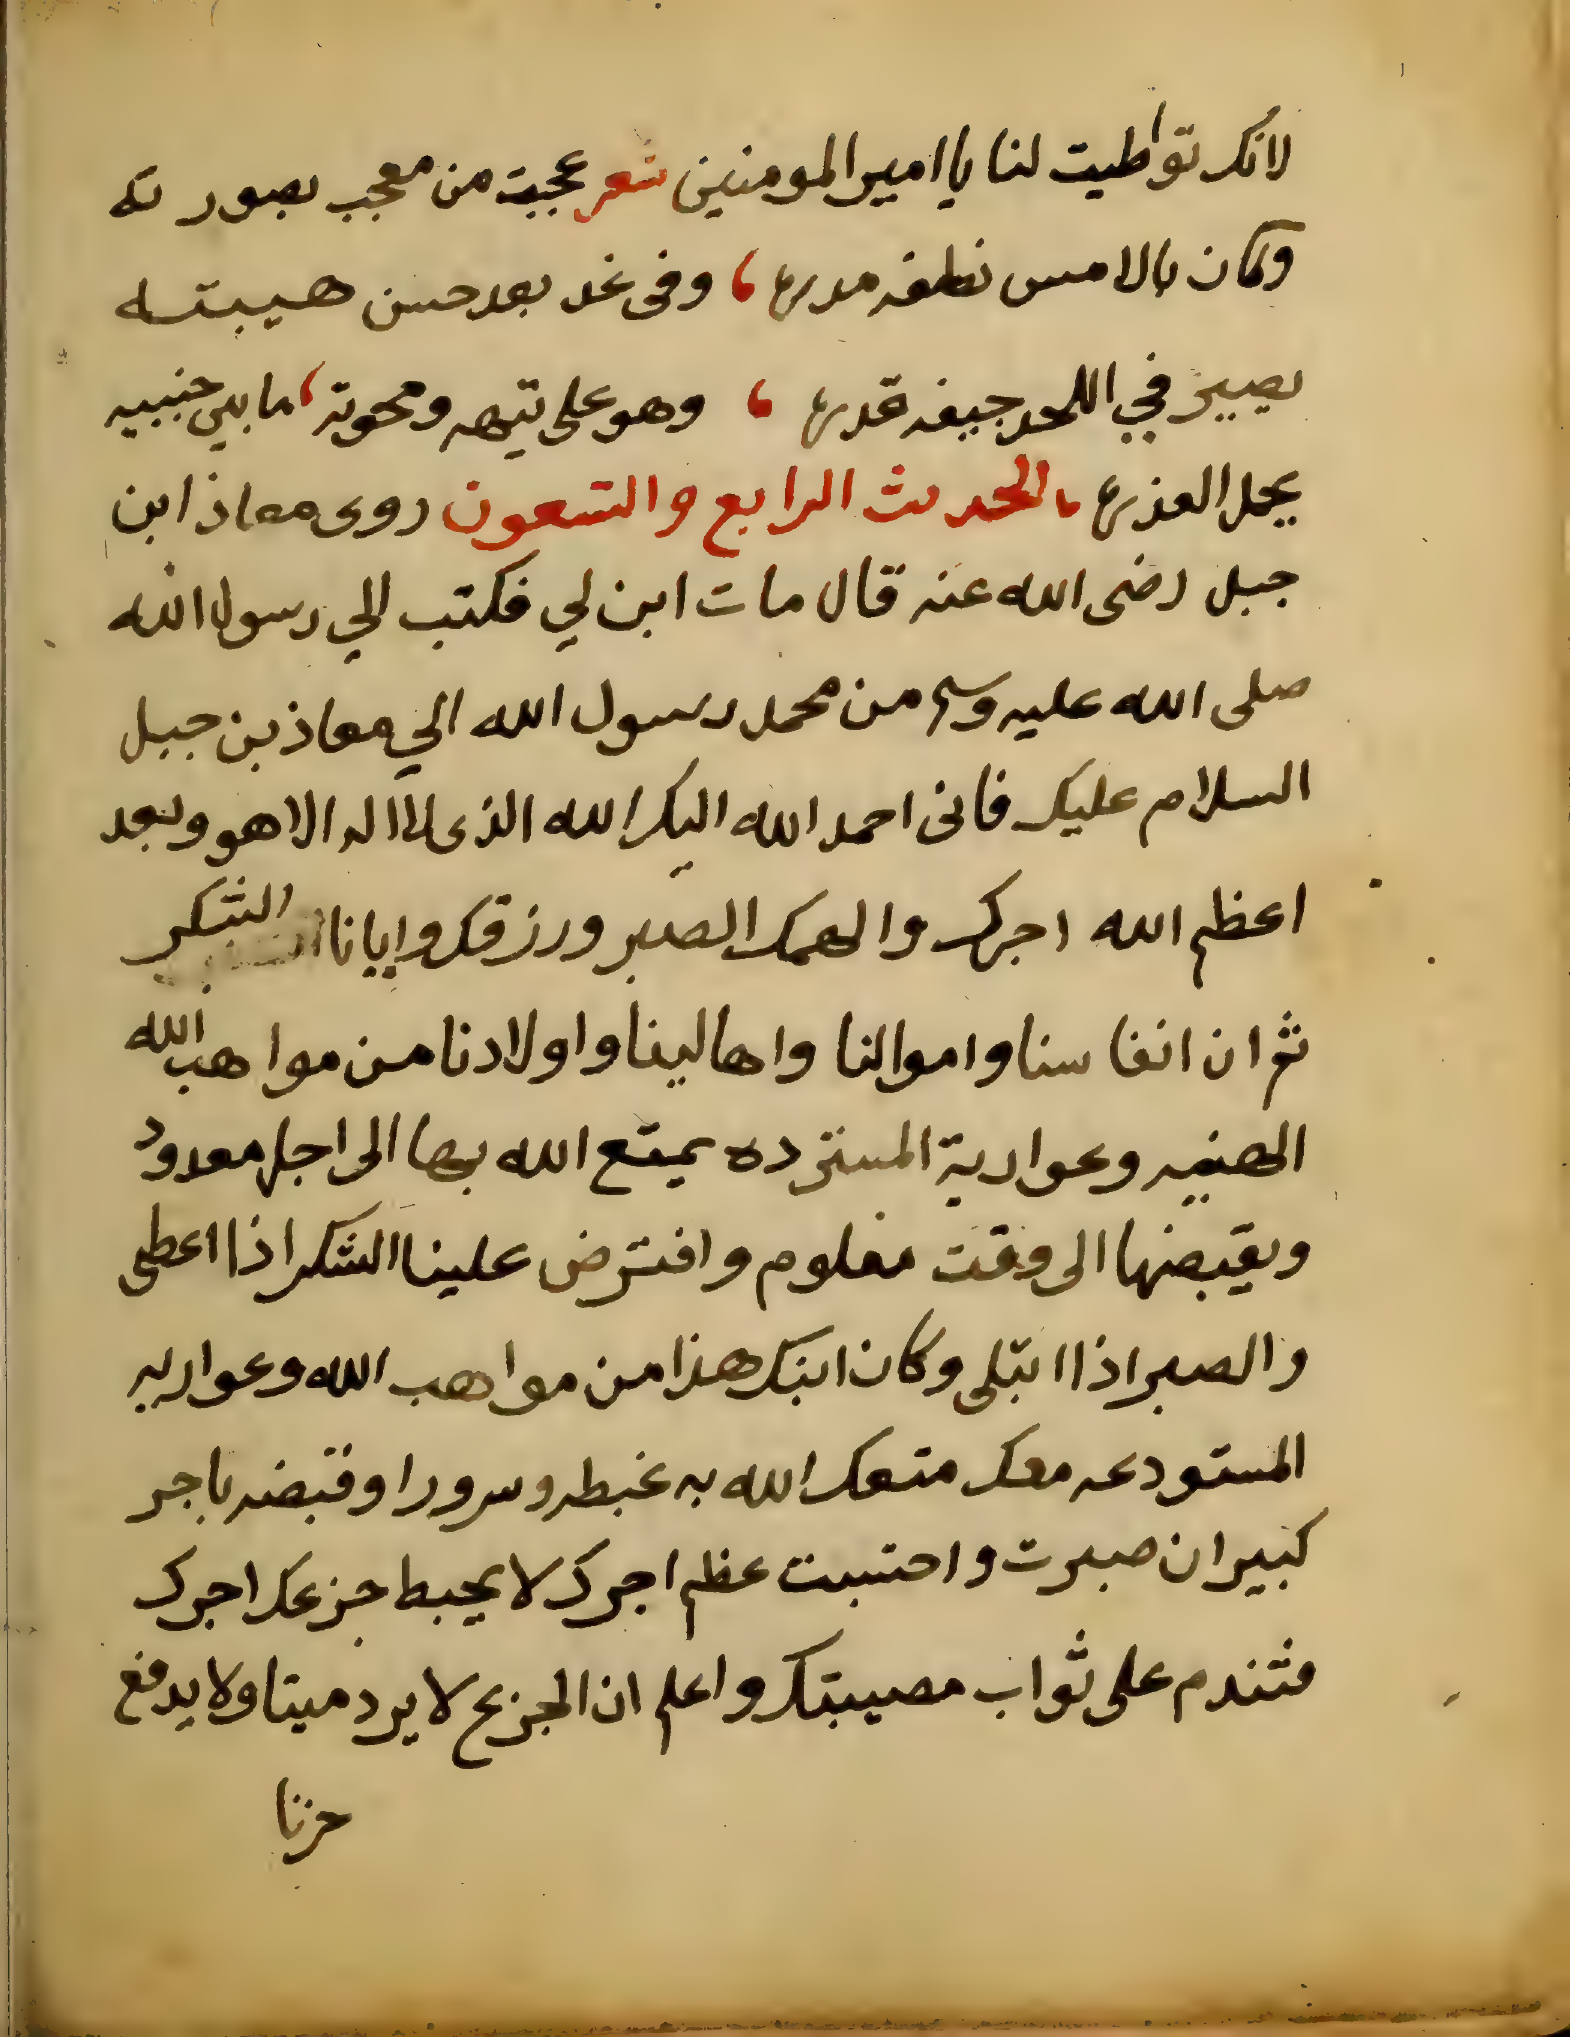 لانك تواطيت لنا يا امير المومنين شعر عجبت من معجب بصورته
وكان بالامس نطفه مدره ، وفى غد بعد حسن هيبته
يصير في اللحد جيفه قدره ، وهو على تيهه ونحوته ، ما بين جنبيه
يحمل العذره ، الحديث الرابع والتسعون روى معاذ ابن
جبل رضى الله عنه قال مات ابن لي فكتب الي رسول الله
صلى الله عليه وسلم من محمد رسول الله الي معاذ بن جبل
السلام عليك فانى احمد الله اليك الله الذى لا اله الا هو وبعد
اعظم الله اجرك والهمك الصبر ورزقك وايانا الشكر
ثم ان انفاسنا واموالنا واهالينا واولادنا من مواهب الله
الهنيه وعوارية المستزده يمتع الله بها الى اجل معدود
ويقبضها الى وقت معلوم وافترض علينا الشكر اذا اعطى
والصبر اذا ابتلى وكان ابنك هذا من مواهب الله وعواريه
المستودعه معك متعك الله به غبطه وسرورا وقبضه باجر
كبير ان صبرت واحتسبت عظم اجرك لا يحبط جزعك اجرك
فتندم على ثواب مصيبتك واعلم ان الجزع لا يرد ميتا ولا يدفع
حزنا